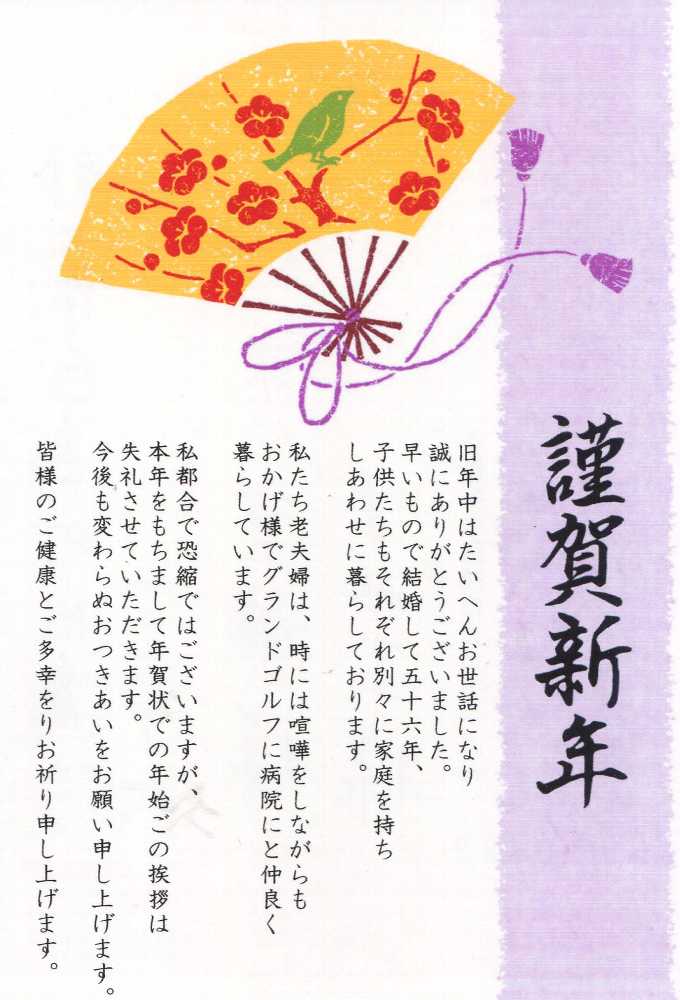 謹賀新年
旧年中はたいへんお世話になり
誠にありがとうございました。
早いもので結婚して五十六年、
子供たちもそれぞれ別々に家庭を持ち
しあわせに暮らしております。
私たち老夫婦は、時には喧嘩をしながらも
おかげ様でグランドゴルフに病院にと仲良く
暮らしています。
私都合で恐縮ではございますが、
本年をもちまして年賀状での年始ごの挨拶は
失礼させていただきます。
今後も変わらぬおつきあいをお願い申し上げます。
皆様のご健康とご多幸をりお祈り申し上げます。